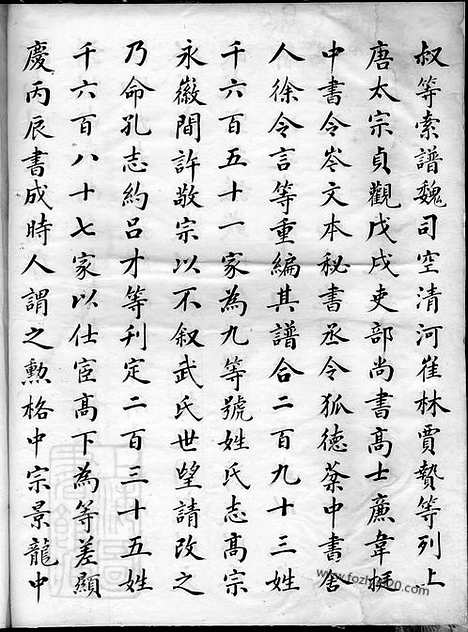 叔等索譜魏司空清河崔林賈贄等列上
唐太宗貞觀戊戌吏部尚書髙士廉韋挺
中書令岑文本秘書丞令狐德棻中書舍
人徐令言等重編其譜合二百九十三姓
千六百五十一家為九等號姓氏志髙宗
永徽間許敬宗以不叙武氏世望請改之
乃命孔志約呂才等刊定二百三十五姓
千六百八十七家以仕宦髙下為等差顯
慶丙辰書成時人謂之勲格中宗景龍中